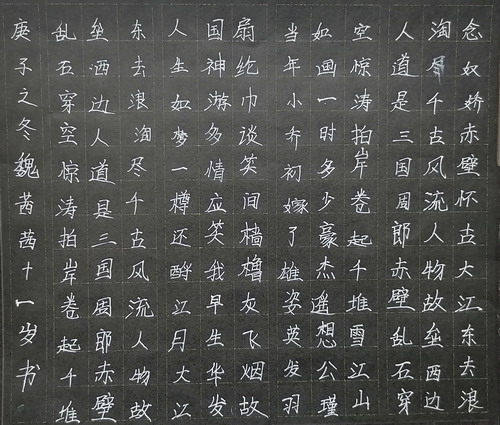 念奴娇赤壁怀古大江东去浪
淘尽千古风流人物故垒西边
人道是三国周郎赤壁乱石穿
空惊涛拍岸卷起千堆雪江山
如画一时多少豪杰遥想公瑾
当年小乔初嫁了雄姿英发羽
扇纶巾谈笑间樯橹灰飞烟故
国神游多情应笑我早生华发
人生如梦一樽还酹江月大江
东去浪淘尽千古风流人物故
垒洒边人道是三国周郎赤壁
乱石穿空惊涛拍岸卷起千堆
庚子之冬魏茜茜十一岁书